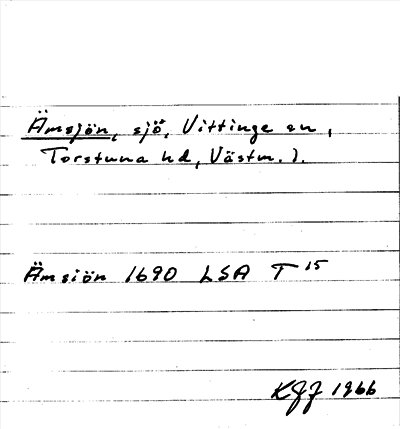 Ämsjön, sjö, Vittinge sn,
Torstuna hd, Västm. l.
Ämsiön 1690 LSA T 15
KGJ 1966